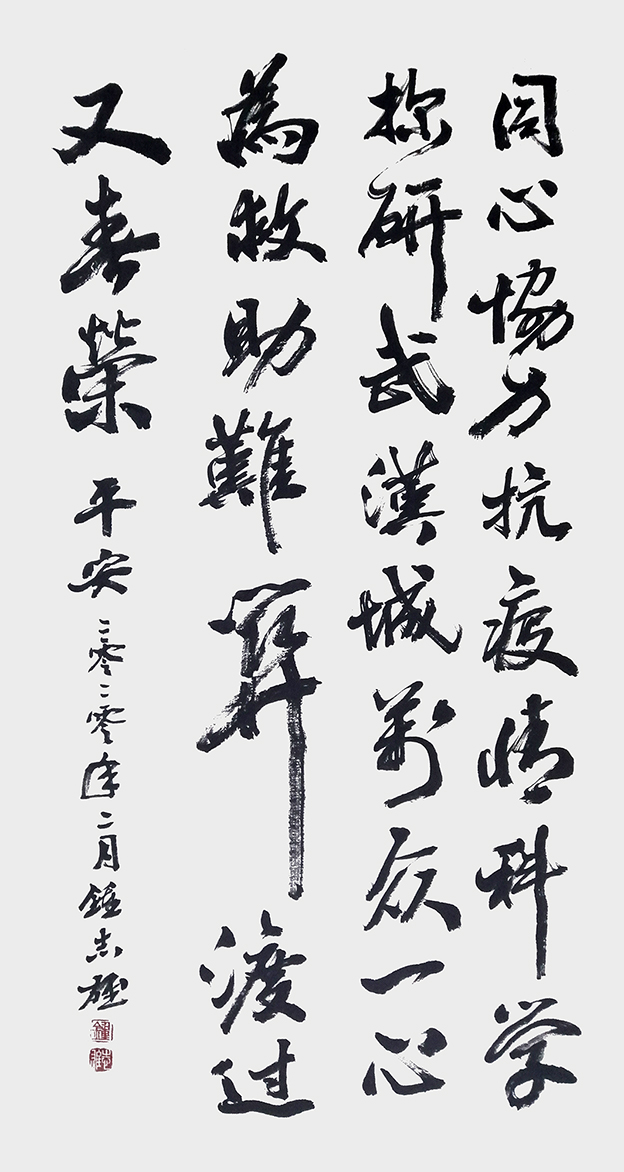 同心協力抗疫情科学
探研武漢城萬众一心
為救助難關渡过
又春榮 平安 二零二零年二月鍾志雄